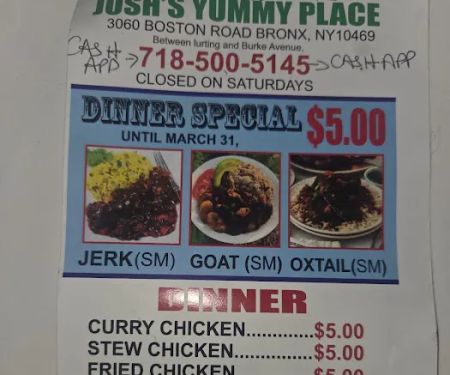 JOSH'S YUMMY PLACE
3060 BOSTON ROAD BRONX, NY10469
Between lurting and Burke Avenue,
CASH APP → 718-500-5145 → CASH APP
CLOSED ON SATURDAYS
DINNER SPECIAL $5.00
UNTIL MARCH 31,
JERK(SM) GOAT (SM) OXTAIL(SM)
DINNER
CURRY CHICKEN.............$5.00
STEW CHICKEN..............$5.00
FRIED CHICKEN $5.00